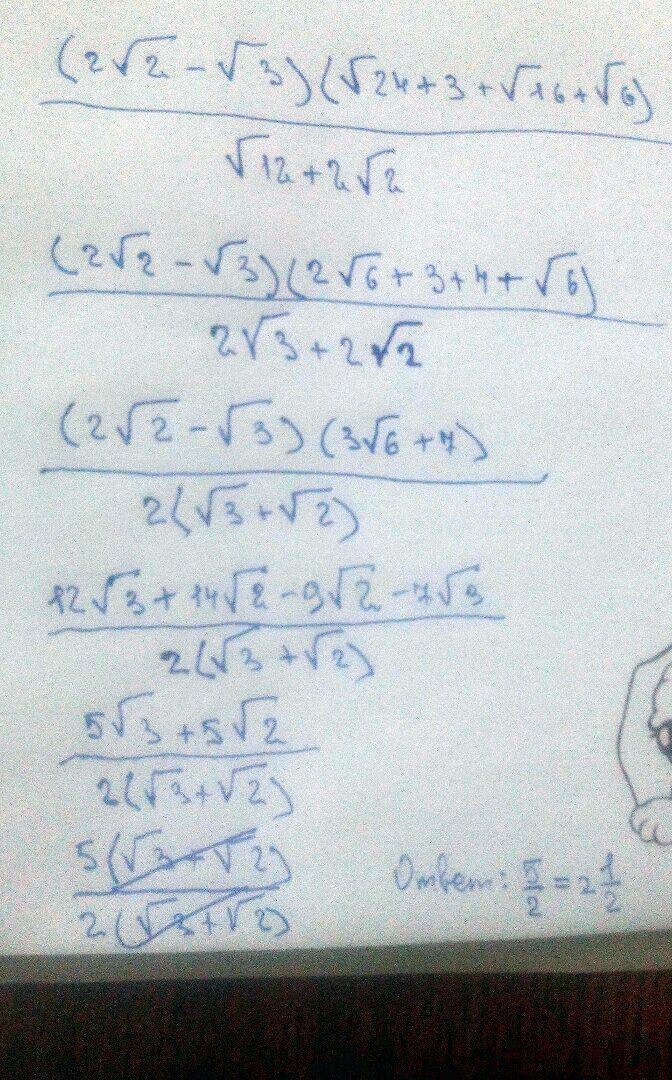 (2√2 - √3)(√24 + 3 + √16 + √6)
√12 + 2√2
(2√2 - √3)(2√6 + 3 + 4 + √6)
2√3 + 2√2
(2√2 - √3)(3√6 + 7)
2(√3 + √2)
12√3 + 14√2 - 9√2 - 7√3
2(√3 + √2)
5√3 + 5√2
2(√3 + √2)
5(√3 + √2)
2(√3 + √2)
Ответ: 5/2 = 2 1/2